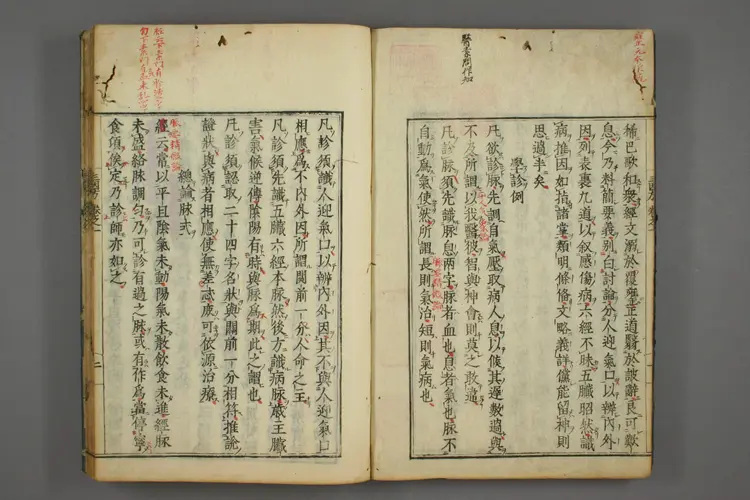 稀巴歌和衆經文溺於覆甕正道翳於詖辭良可歎
息今乃料簡要義列曰討論分人迎氣口以辨內外
因列表裏九道以叙感傷病六經不昧五臟昭然識
病推因如指諸掌類明條備文略義詳儻能留神則
思過半矣
學診例
凡欲診脉先調自氣壓取病人息以候其遲數過與
不及所謂以我醫彼智與神會則莫之敢違
凡診脉須先識脉息兩字脉者血也息者氣也脉不
自動爲氣使然所謂長則氣治短則氣病也
凡診須識人迎氣口以辨內外因其不與人迎氣口
相應爲不內外因所謂關前一分人命之主
凡診須先識五臟六經本脉然後方識病脉歲主臟
害氣候逆傳陰陽有時與脉爲期此之謂也
凡診須認取二十四字名狀與關前一分相符推說
證狀與病者相應使無差忒庶可依源治療
總論脉式
經云常以平旦陰氣未動陽氣未散飲食未進經脉
未盛絡脉調勻乃可診有過之脉或有作爲當停寧
食頃俟定乃診師亦如之